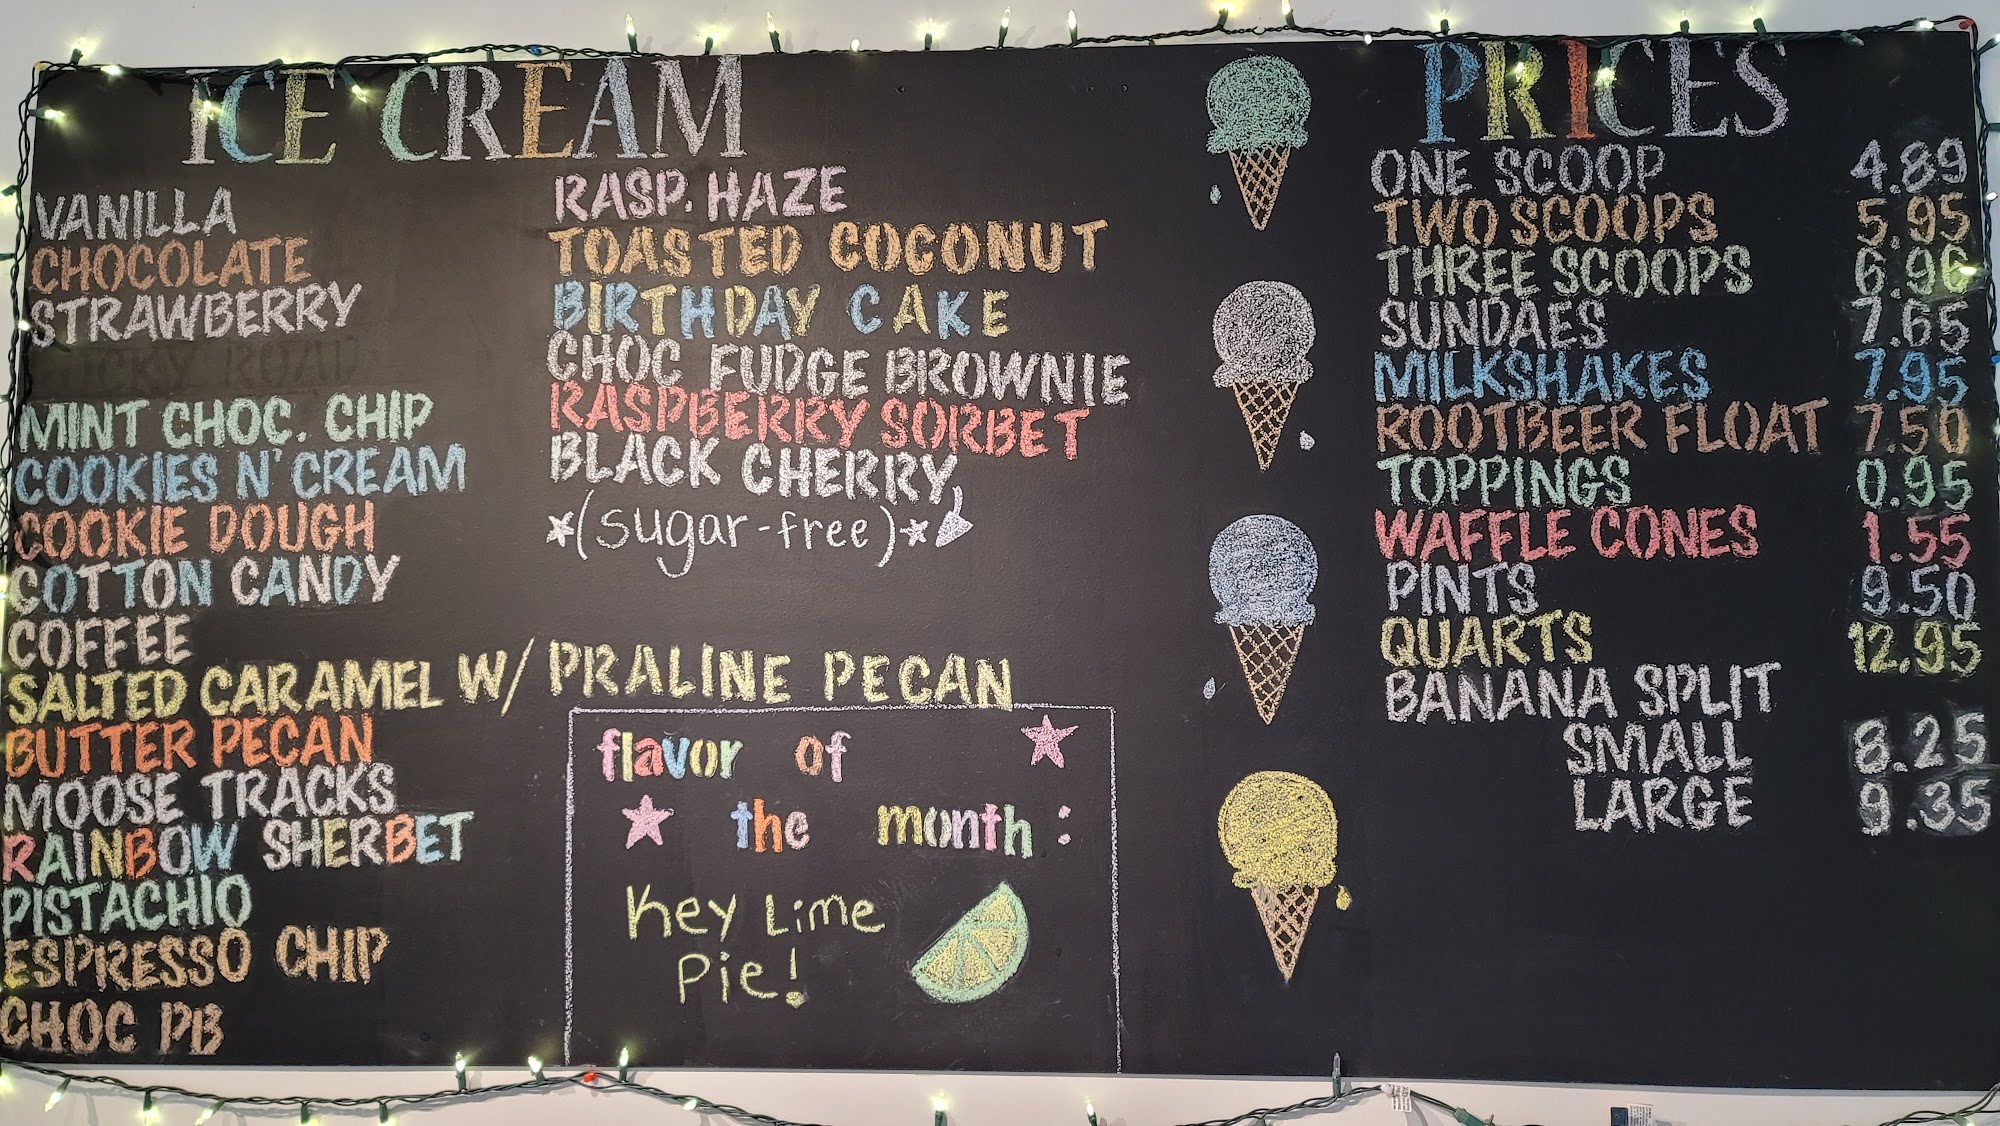 ICE CREAM
VANILLA
CHOCOLATE
STRAWBERRY
ROCKY ROAD
MINT CHOC. CHIP
COOKIES N' CREAM
COOKIE DOUGH
COTTON CANDY
COFFEE
SALTED CARAMEL W/ PRALINE PECAN
BUTTER PECAN
MOOSE TRACKS
RAINBOW SHERBET
PISTACHIO
ESPRESSO CHIP
CHOC PB
RASP. HAZE
TOASTED COCONUT
BIRTHDAY CAKE
CHOC FUDGE BROWNIE
RASPBERRY SORBET
BLACK CHERRY
*(sugar-free)*
flavor of
the month:
Key Lime
Pie!
PRICES
ONE SCOOP 4.89
TWO SCOOPS 5.95
THREE SCOOPS 6.96
SUNDAES 7.65
MILKSHAKES 7.95
ROOTBEER FLOAT 7.50
TOPPINGS 0.95
WAFFLE CONES 1.55
PINTS 9.50
QUARTS 12.95
BANANA SPLIT
SMALL 8.25
LARGE 9.35